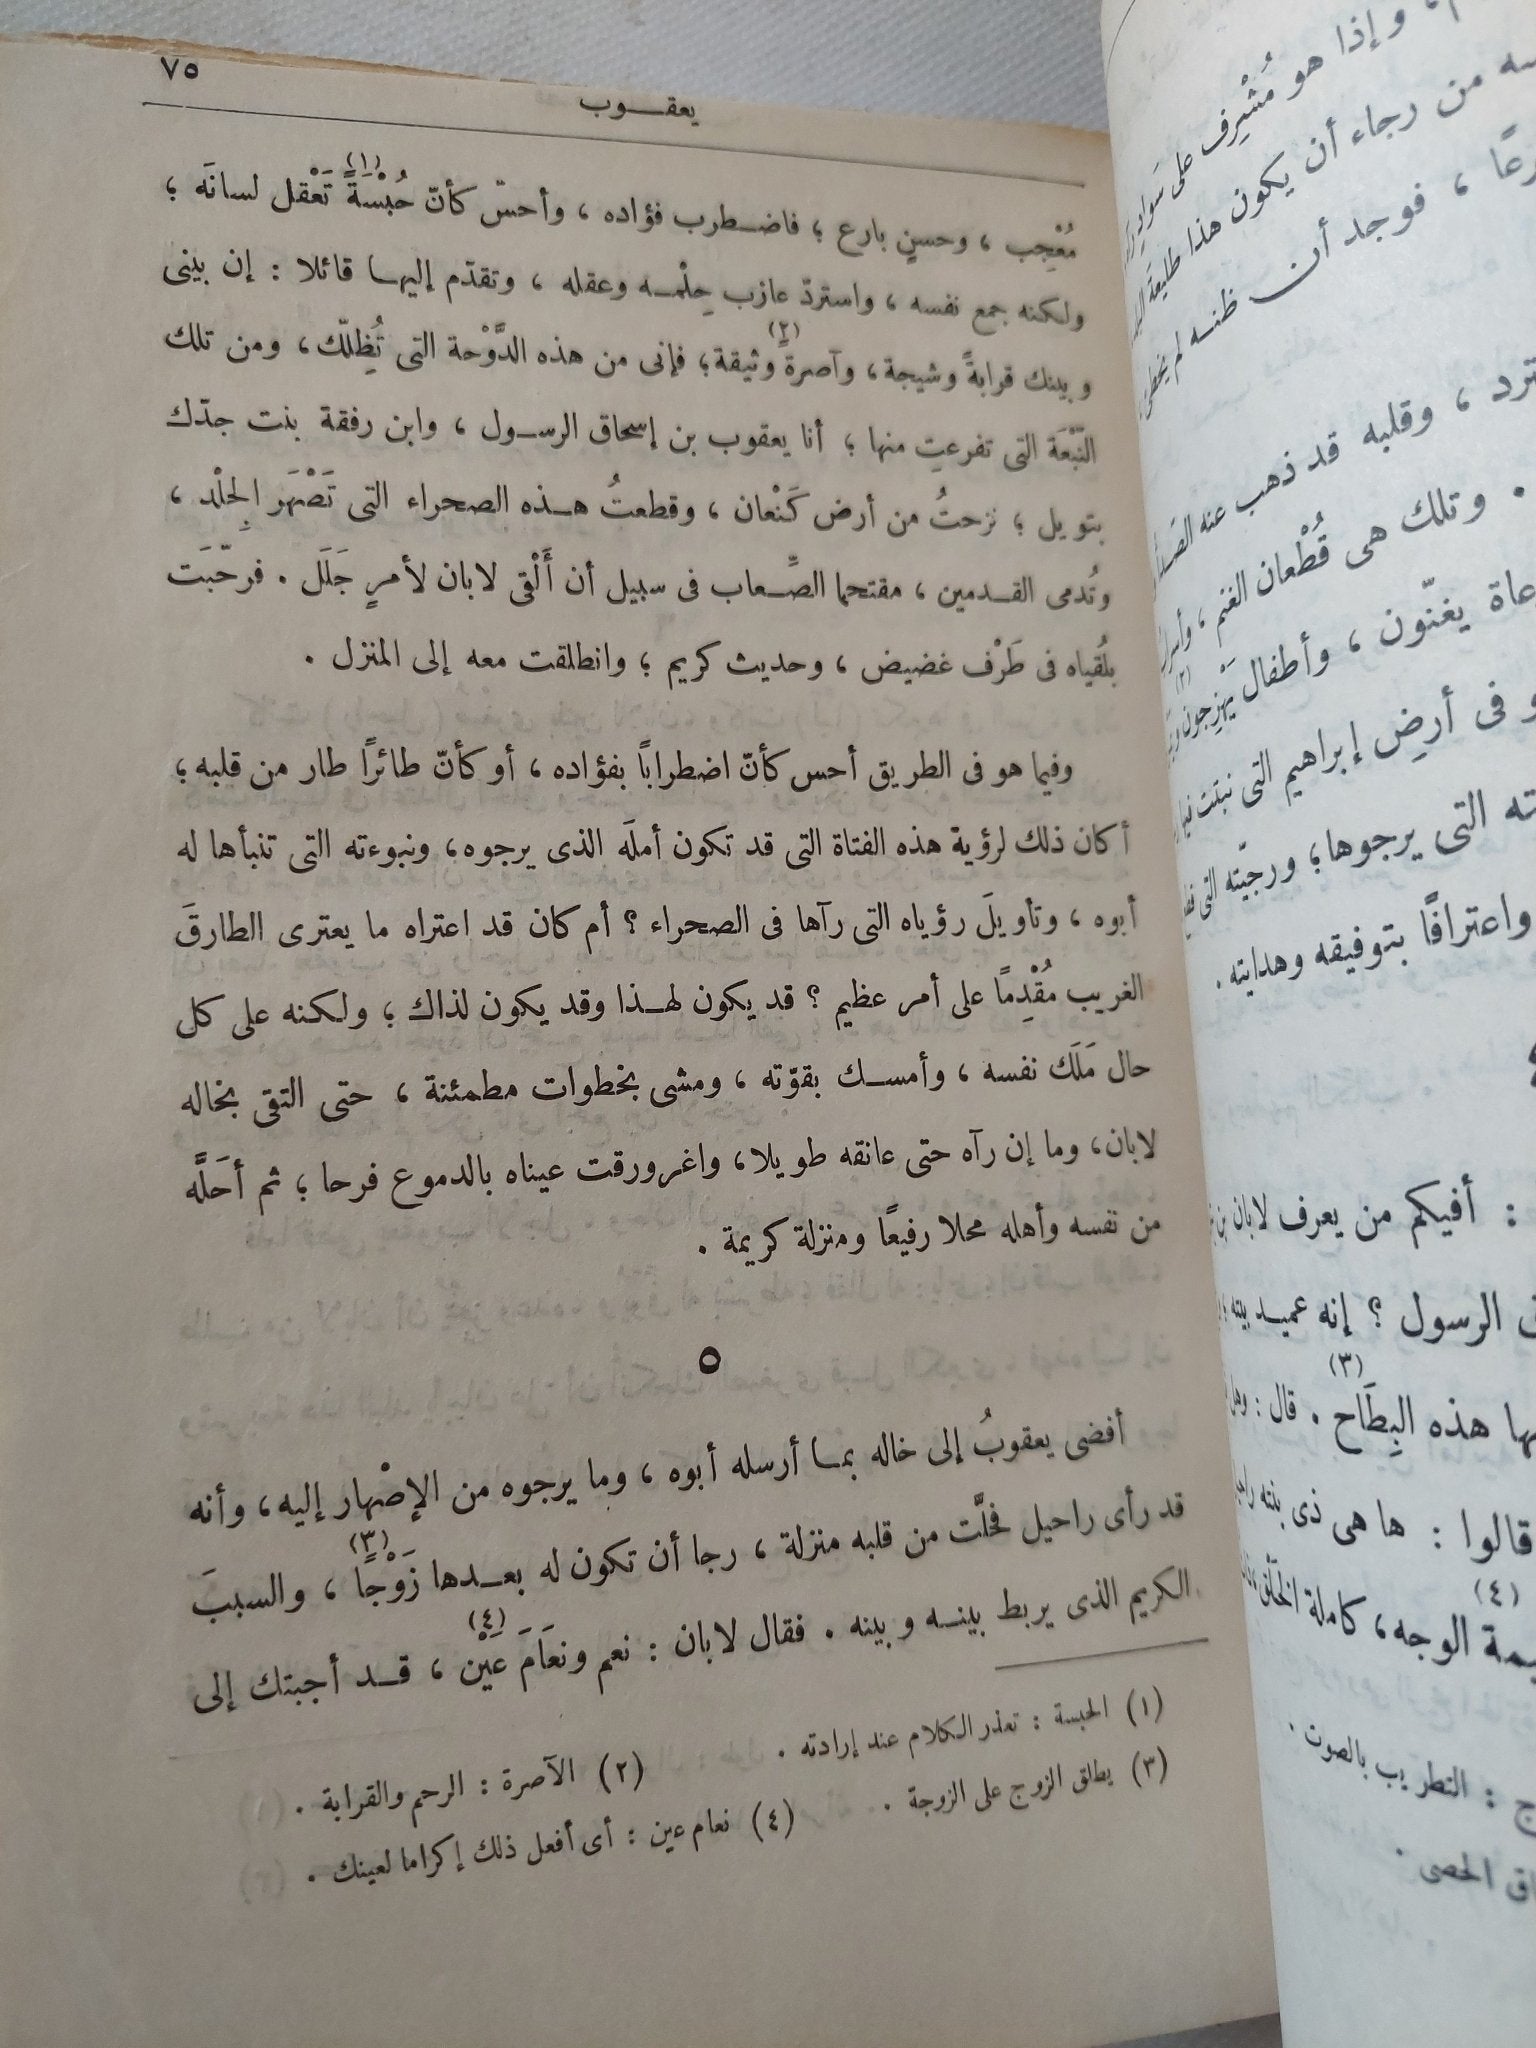 يعقـــوب
٧٥
مُعْجِب ، وحسنٍ بارع ؛ فاضـطرب فؤاده ، وأحسّ كأنّ حُبْسَةً (١) تَعْقل لسانَه ؛
ولكنه جمع نفسه ، واستردّ عازب حِلْمـه وعقله ، وتقدّم إليهـا قائلا : إن بينى
وبينك قرابةً وشيجة ، وآصرةً (٢) وثيقة ؛ فإنى من هذه الدَّوْحة التى تُظِلّك ، ومن تلك
النَّبْعَة التى تفرعتِ منها ؛ أنا يعقوب بن إسحاق الرسـول ، وابن رفقة بنت جدّك
بتويل ؛ نزحتُ من أرض كَنْعان ، وقطعتُ هـذه الصحراء التى تَصْهَر الجِلْد ،
وتُدمى القـدمين ، مقتحما الصِّعاب فى سبيل أن أَلْقى لابان لأمرٍ جَلَل . فرحّبَت
بلُقياه فى طَرْف غضيض ، وحديث كريم ؛ وانطلقت معه إلى المنزل .
وفيما هو فى الطريق أحس كأنّ اضطرابًا بفؤاده ، أو كأنّ طائرًا طار من قلبه ؛
أكان ذلك لرؤية هذه الفتاة التى قد تكون أملَه الذى يرجوه ، ونبوءته التى تنبأها له
أبوه ، وتأويلَ رؤياه التى رآها فى الصحراء ؟ أم كان قد اعتراه ما يعترى الطارقَ
الغريب مُقْدِمًا على أمر عظيم ؟ قد يكون لهـذا وقد يكون لذاك ؛ ولكنه على كل
حال مَلَك نفسه ، وأمسـك بقوّته ، ومشى بخطوات مطمئنة ، حتى التقى بخاله
لابان ، وما إن رآه حتى عانقه طويلا ، واغرورقت عيناه بالدموع فرحا ؛ ثم أحَلَّه
من نفسه وأهله محلا رفيعًا ومنزلة كريمة .
٥
أفضى يعقوبُ إلى خاله بمـا أرسله أبوه ، وما يرجوه من الإصْهار إليه ، وأنه
قد رأى راحيل فحلَّت من قلبه منزلة ، رجا أن تكون له بعـدها زَوْجًا (٣) ، والسببَ
الكريم الذى يربط بينـه وبينه . فقال لابان : نعم ونعَامَ عَيْن (٤) ، قـد أجبتك إلى
(١) الحبسة : تعذر الكلام عند إرادته .
(٢) الآصرة : الرحم والقرابة .
(٣) يطلق الزوج على الزوجة .
(٤) نعام عين : أى أفعل ذلك إكراما لعينك .
وإذا هو مُشْرِف على سَوادٍ
من رجاء أن يكون هذا طليعة
، فوجد أن ظنـه لم يخطئ
، وقلبه قد ذهب عنه
. وتلك هى قُطْعان الغنم ،
يغنّون ، وأطفال يَهْزِجون (٢)
فى أرضِ إبراهيم التى نبتت
التى يرجوها ؛ ورجيّته التى
واعترافًا بتوفيقه وهدايته .
: أفيكم من يعرف لابان بن
الرسول ؟ إنه عميـد بيته
هذه البِطَاح (٣) . قال : وهل
قالوا : ها هى ذى بنته
(٤) الوجه ، كاملة الخَلْق
: التطريب بالصوت .
الحصى .